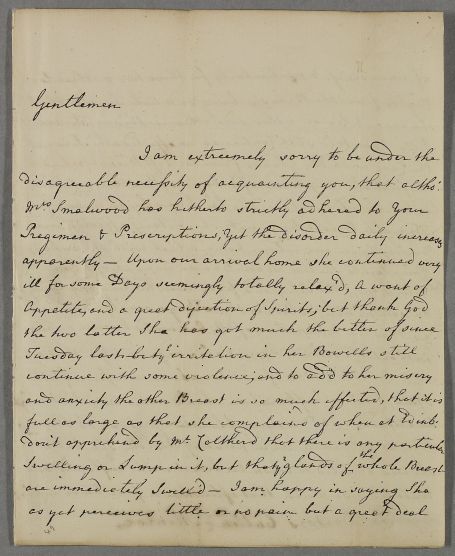 Gentlemen
I am extreemely sorry to be under the
disagreeable necessity of acquainting you, that altho'
Mrs Smalwood has hitherto strictly adhered to your
Regimen & Prescriptions, Yet the disorder daily increases
apparently — Upon our arrival home she continued very
ill for some Days seemingly totally relax'd, a want of
Appetite, and a great dijection of Spirits; but thank God
the two latter Sha has got much the better of since
Tuesday last; but ye irritation in her Bowells still
continue with some violence; and to add to her misery
and anxiety the other Breast is so much effected, that it is
full as large as that she complained of when at Edinb.
don't apprehend by Mr that there is any particular
Swelling or Lump in it, but that ye glands of the whole Breast
are immediately Swell'd — I am happy in saying Sha
as yet perceives little or no pain but a great deal